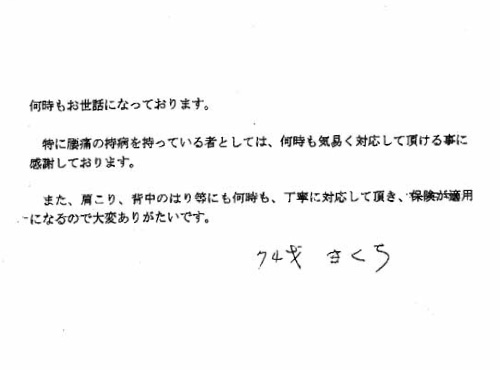 何時もお世話になっております。
特に腰痛の持病を持っている者としては、何時も気易く対応して頂ける事に
感謝しております。
また、肩こり、背中のはり等にも何時も、丁寧に対応して頂き、保険が適用
になるので大変ありがたいです。
74才 きくち